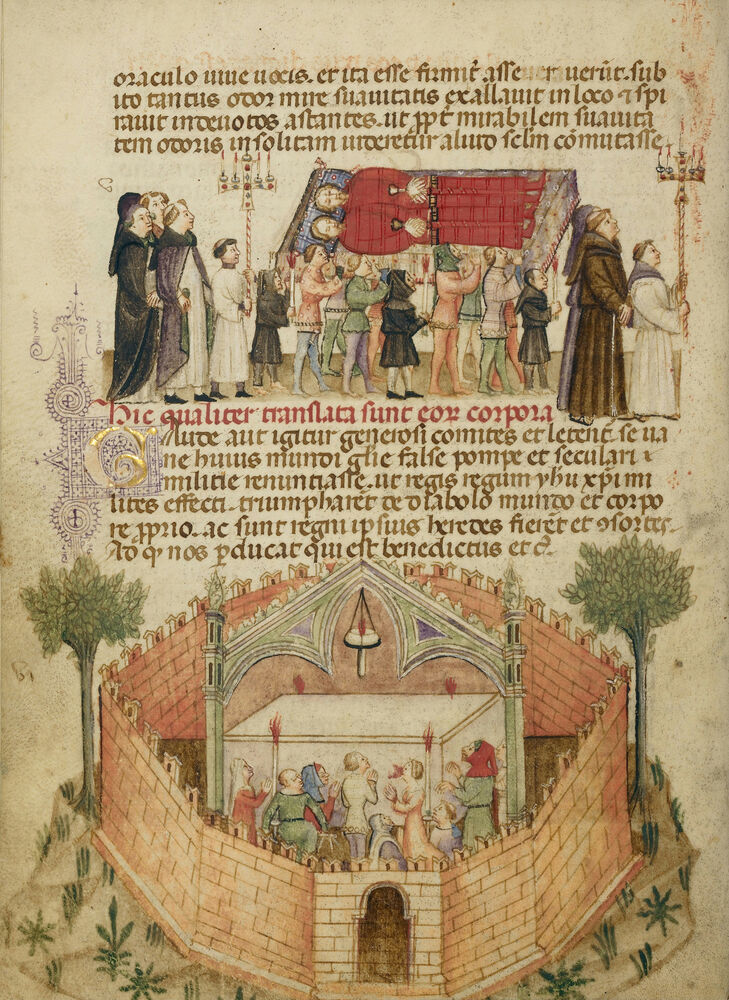 oraculo uiue uocis. et ita esse firmit̄ asse uerūt. sub
ito tantus odor mire suauitatis exallauit in loco ⁊ spi
rauit in deuotos astantes. ut ꝓpt̄ mirabilem suauita
tem odoris insolitam uideretur
Hic qualiter translata sunt eoꝝ corpora
Gaude aūt igitur generosi comites et
ne huius mundi gl̄ie false pompe et seculari
militie renuntiasse. ut regis regum yhu xp̄i mi
lites effecti. triumpharēt de diabolo mundo et corpo
re ꝓprio. ac sunt regni ipsius heredes fierēt et ꝯsortes.
Ad qđ nos ꝑducat qui est benedictus et c̄.